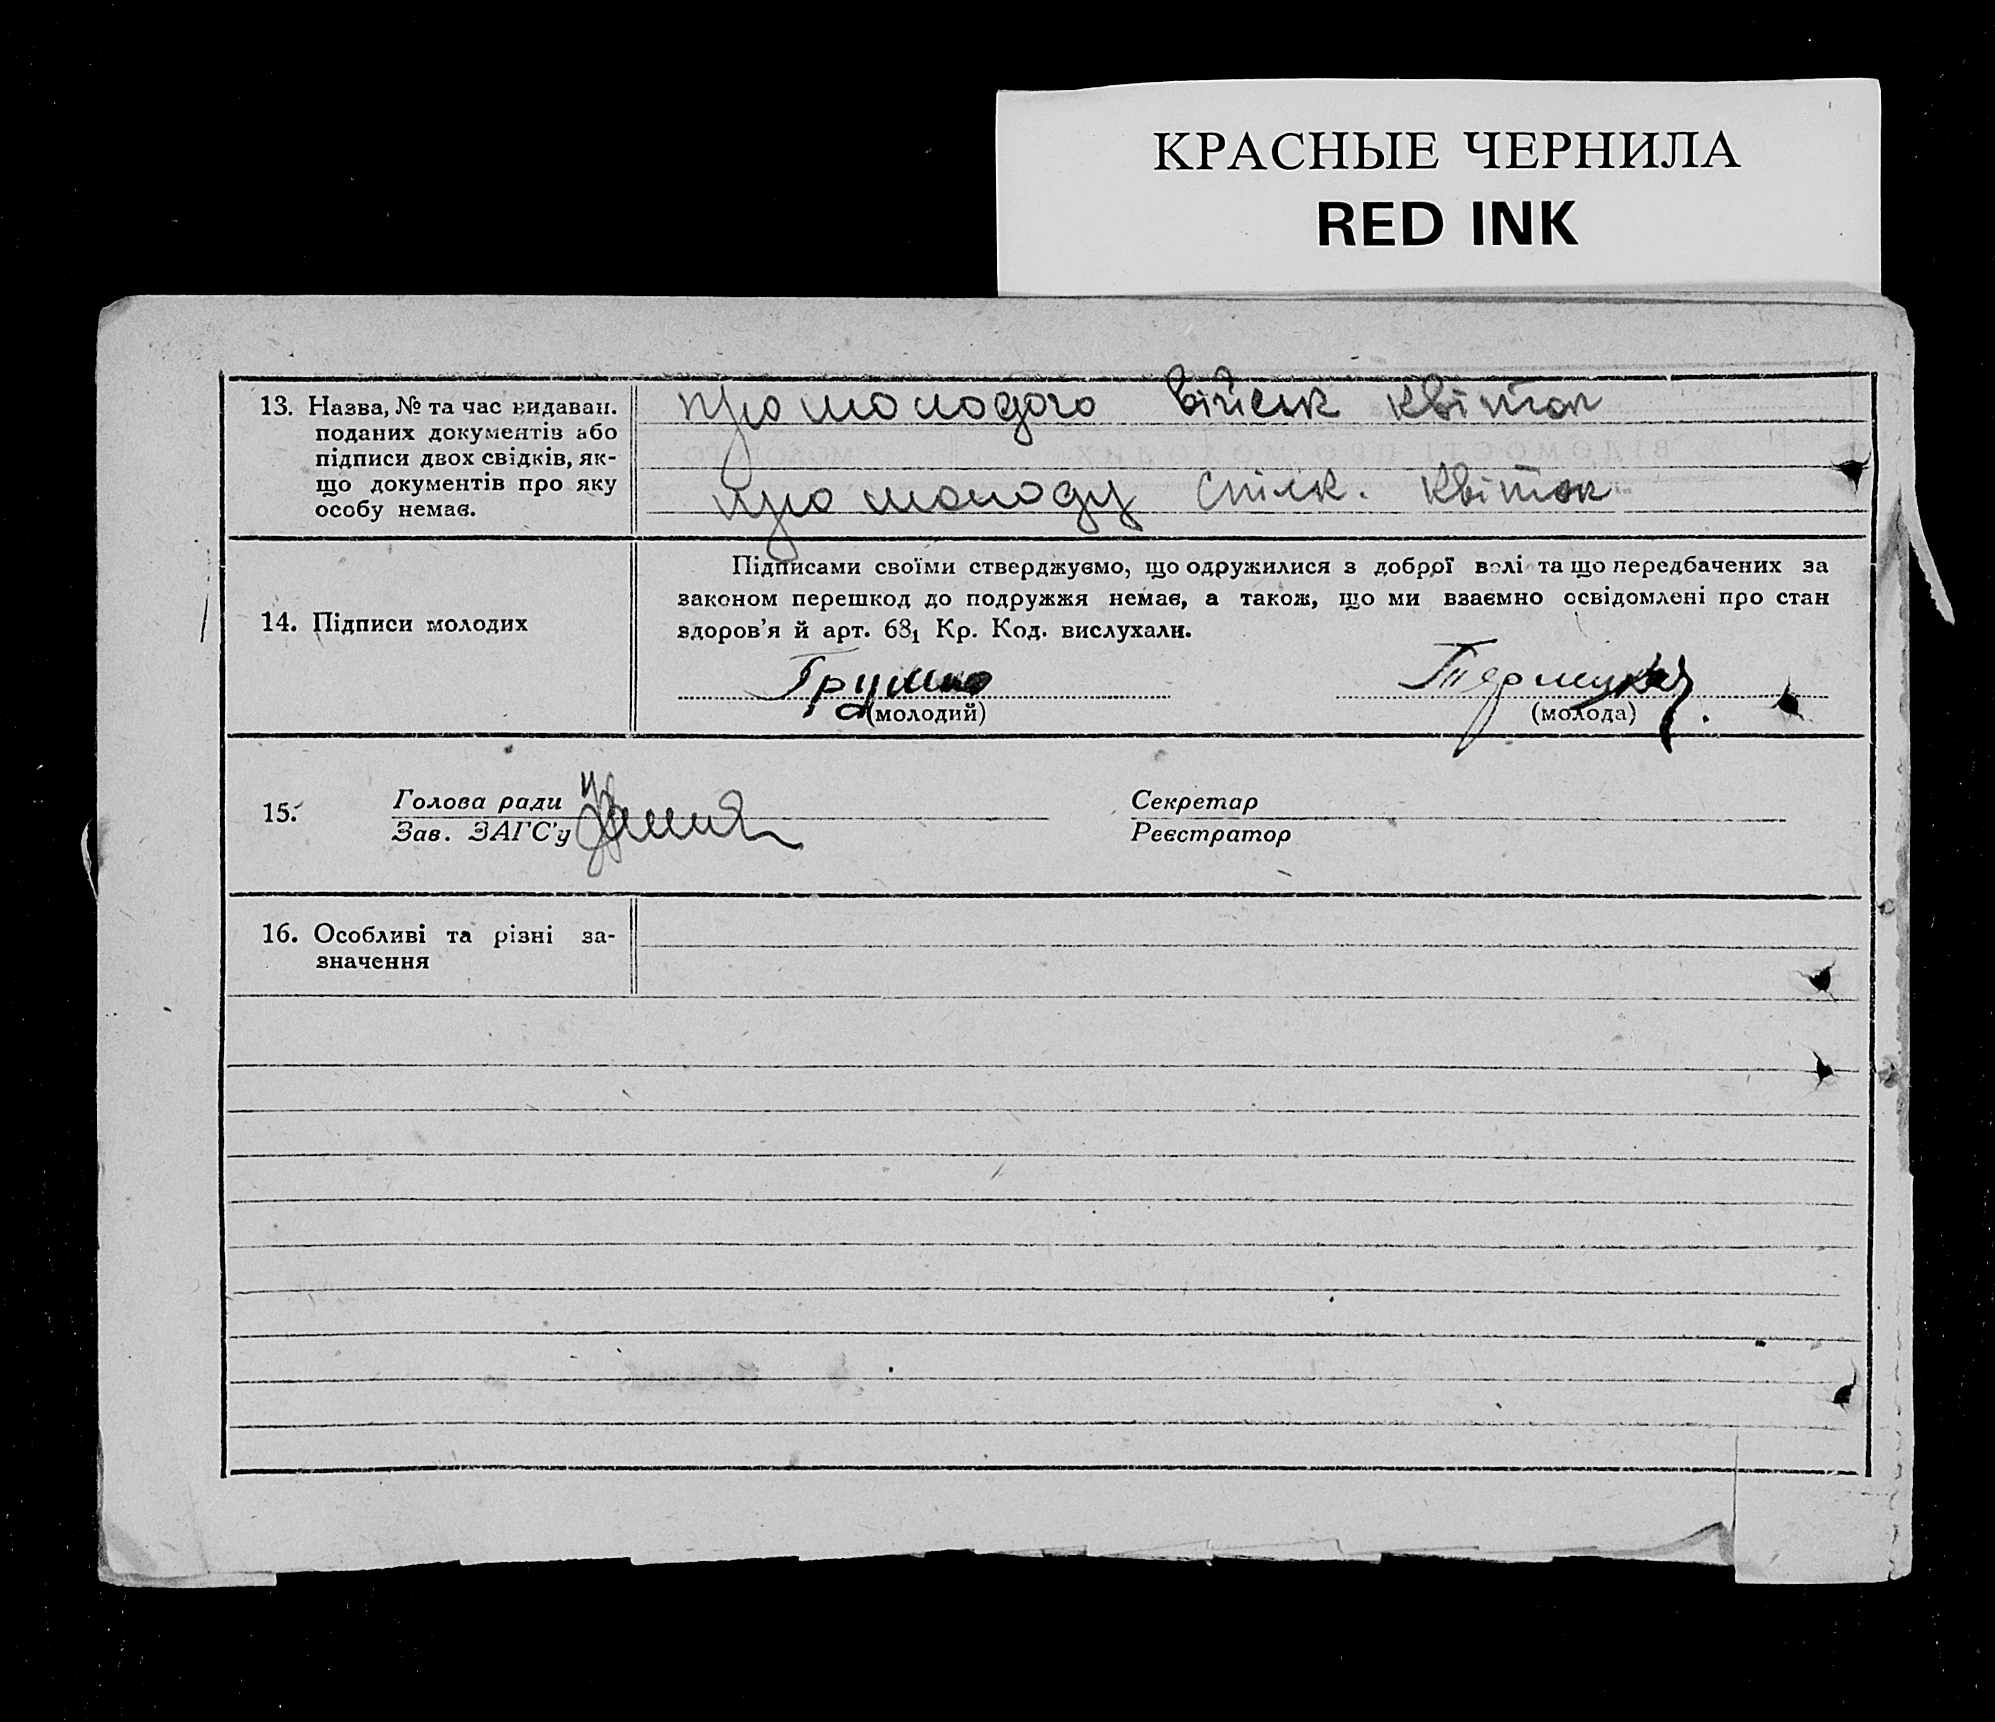 КРАСНЫЕ ЧЕРНИЛА
RED INK
13. Назва, № та час видаван.
поданих документів або
підписи двох свідків, як-
що документів про яку
особу немає.
про молодого військ квіток
про молоду спілк. квіток
14. Підписи молодих
Підписами своїми стверджуємо, що одружилися з доброї волі та що передбачених за
законом перешкод до подружжя немає, а також, що ми взаємно освідомлені про стан
здоров'я й арт. 68₁ Кр. Код. вислухали.
(молодий)
(молода)
15.
Голова ради
Зав. ЗАГС'у
Секретар
Реєстратор
16. Особливі та різні за-
значення